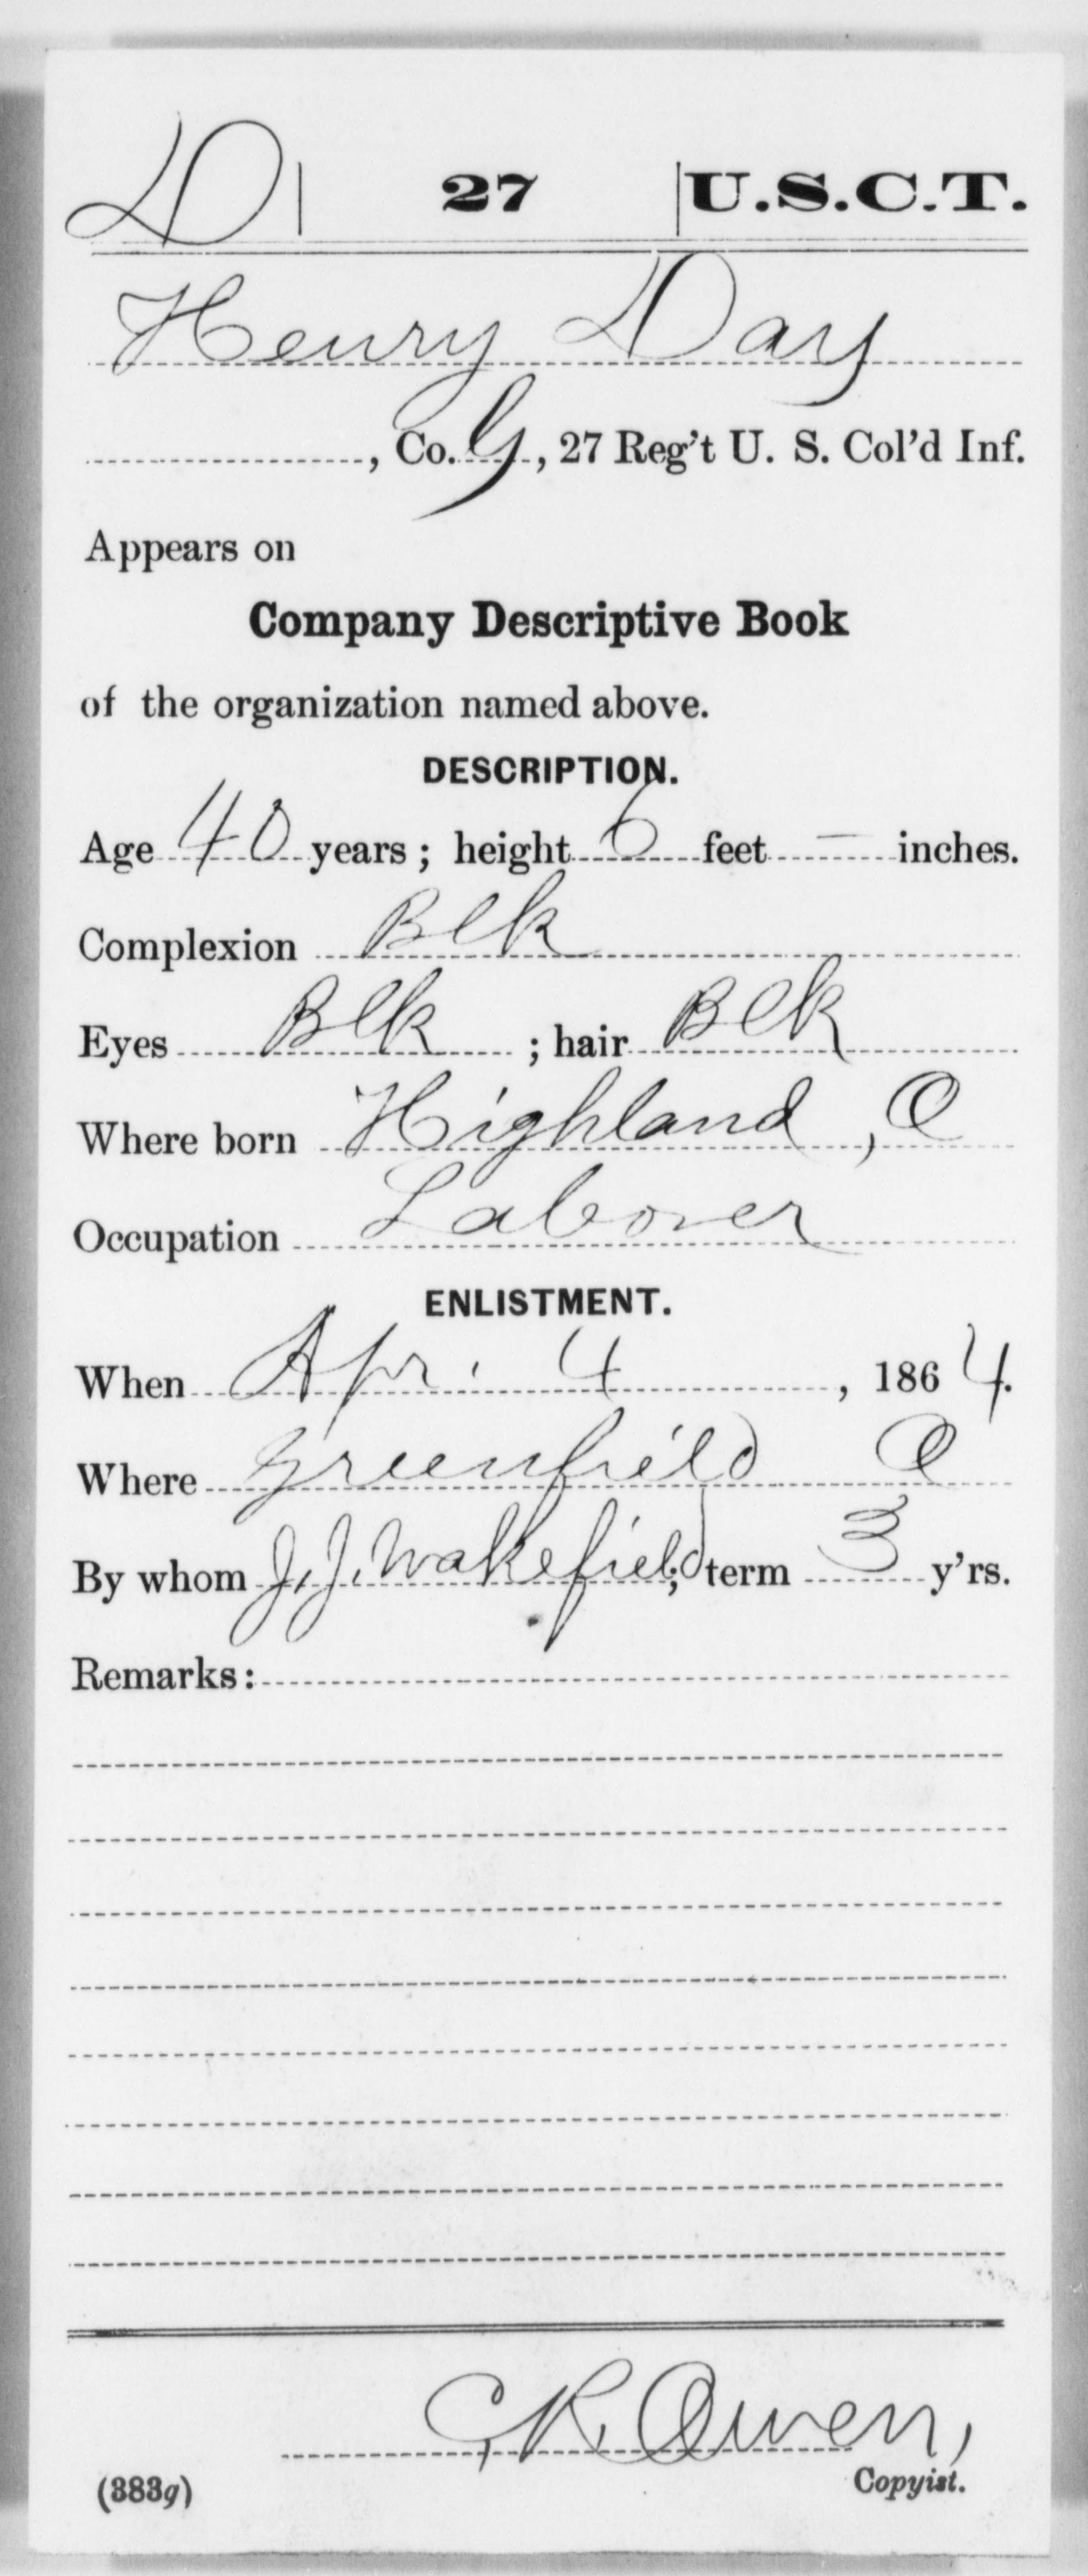 D | 27 | U.S.C.T.
Henry Day
, Co. G, 27 Reg't U. S. Col'd Inf.
Appears on
Company Descriptive Book
of the organization named above.
DESCRIPTION.
Age 40 years; height 6 feet — inches.
Complexion Blk
Eyes Blk ; hair Blk
Where born Highland, O
Occupation Laborer
ENLISTMENT.
When Apr. 4, 1864.
Where Greenfield O
By whom J. J. Wakefield; term 3 y'rs.
Remarks:
C. R. Owen,
Copyist.
(383g)